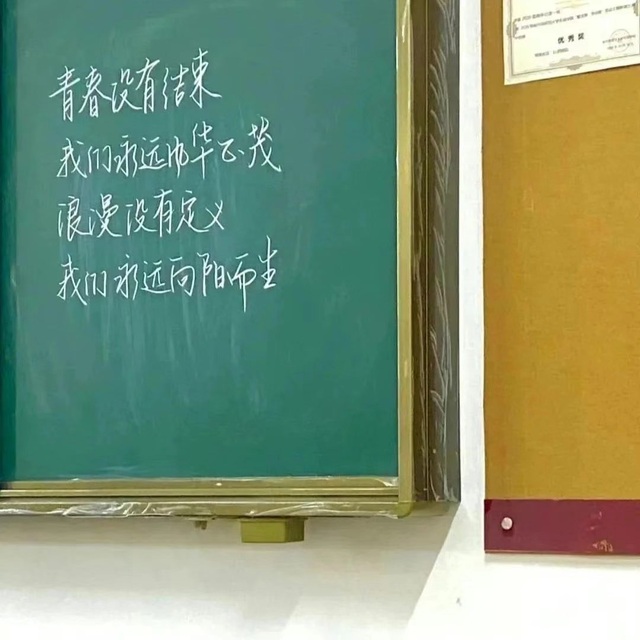 青春没有结束
我们永远风华正茂
浪漫没有定义
我们永远向阳而生
优秀奖